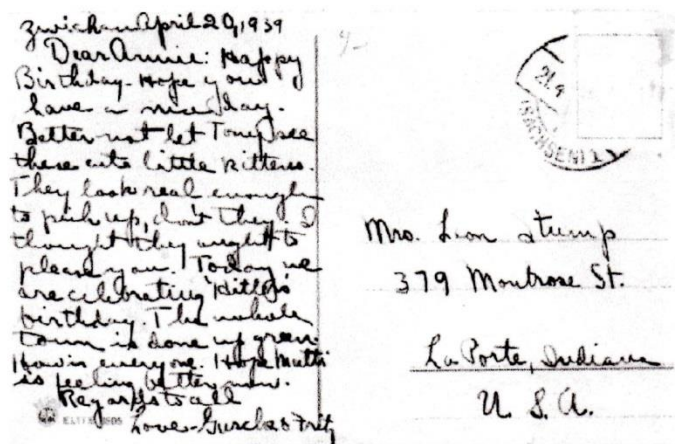 Zwickau April 20, 1939
Dear Annie: Happy
Birthday - Hope you
have a nice day.
Better not let Tony see
these cute little kittens.
They look real enough
to pick up, don't they. I
thought they ought to
please you. Today we
are celebrating Hitler's
birthday. The whole
town is done up green.
How is everyone. Hope Mutti
is feeling better now.
Regards to all
Love - & Fritz
(SACHSEN) 1
Mrs. Leon Stump
379 Montrose St.
La Porte, Indiana
U. S. A.